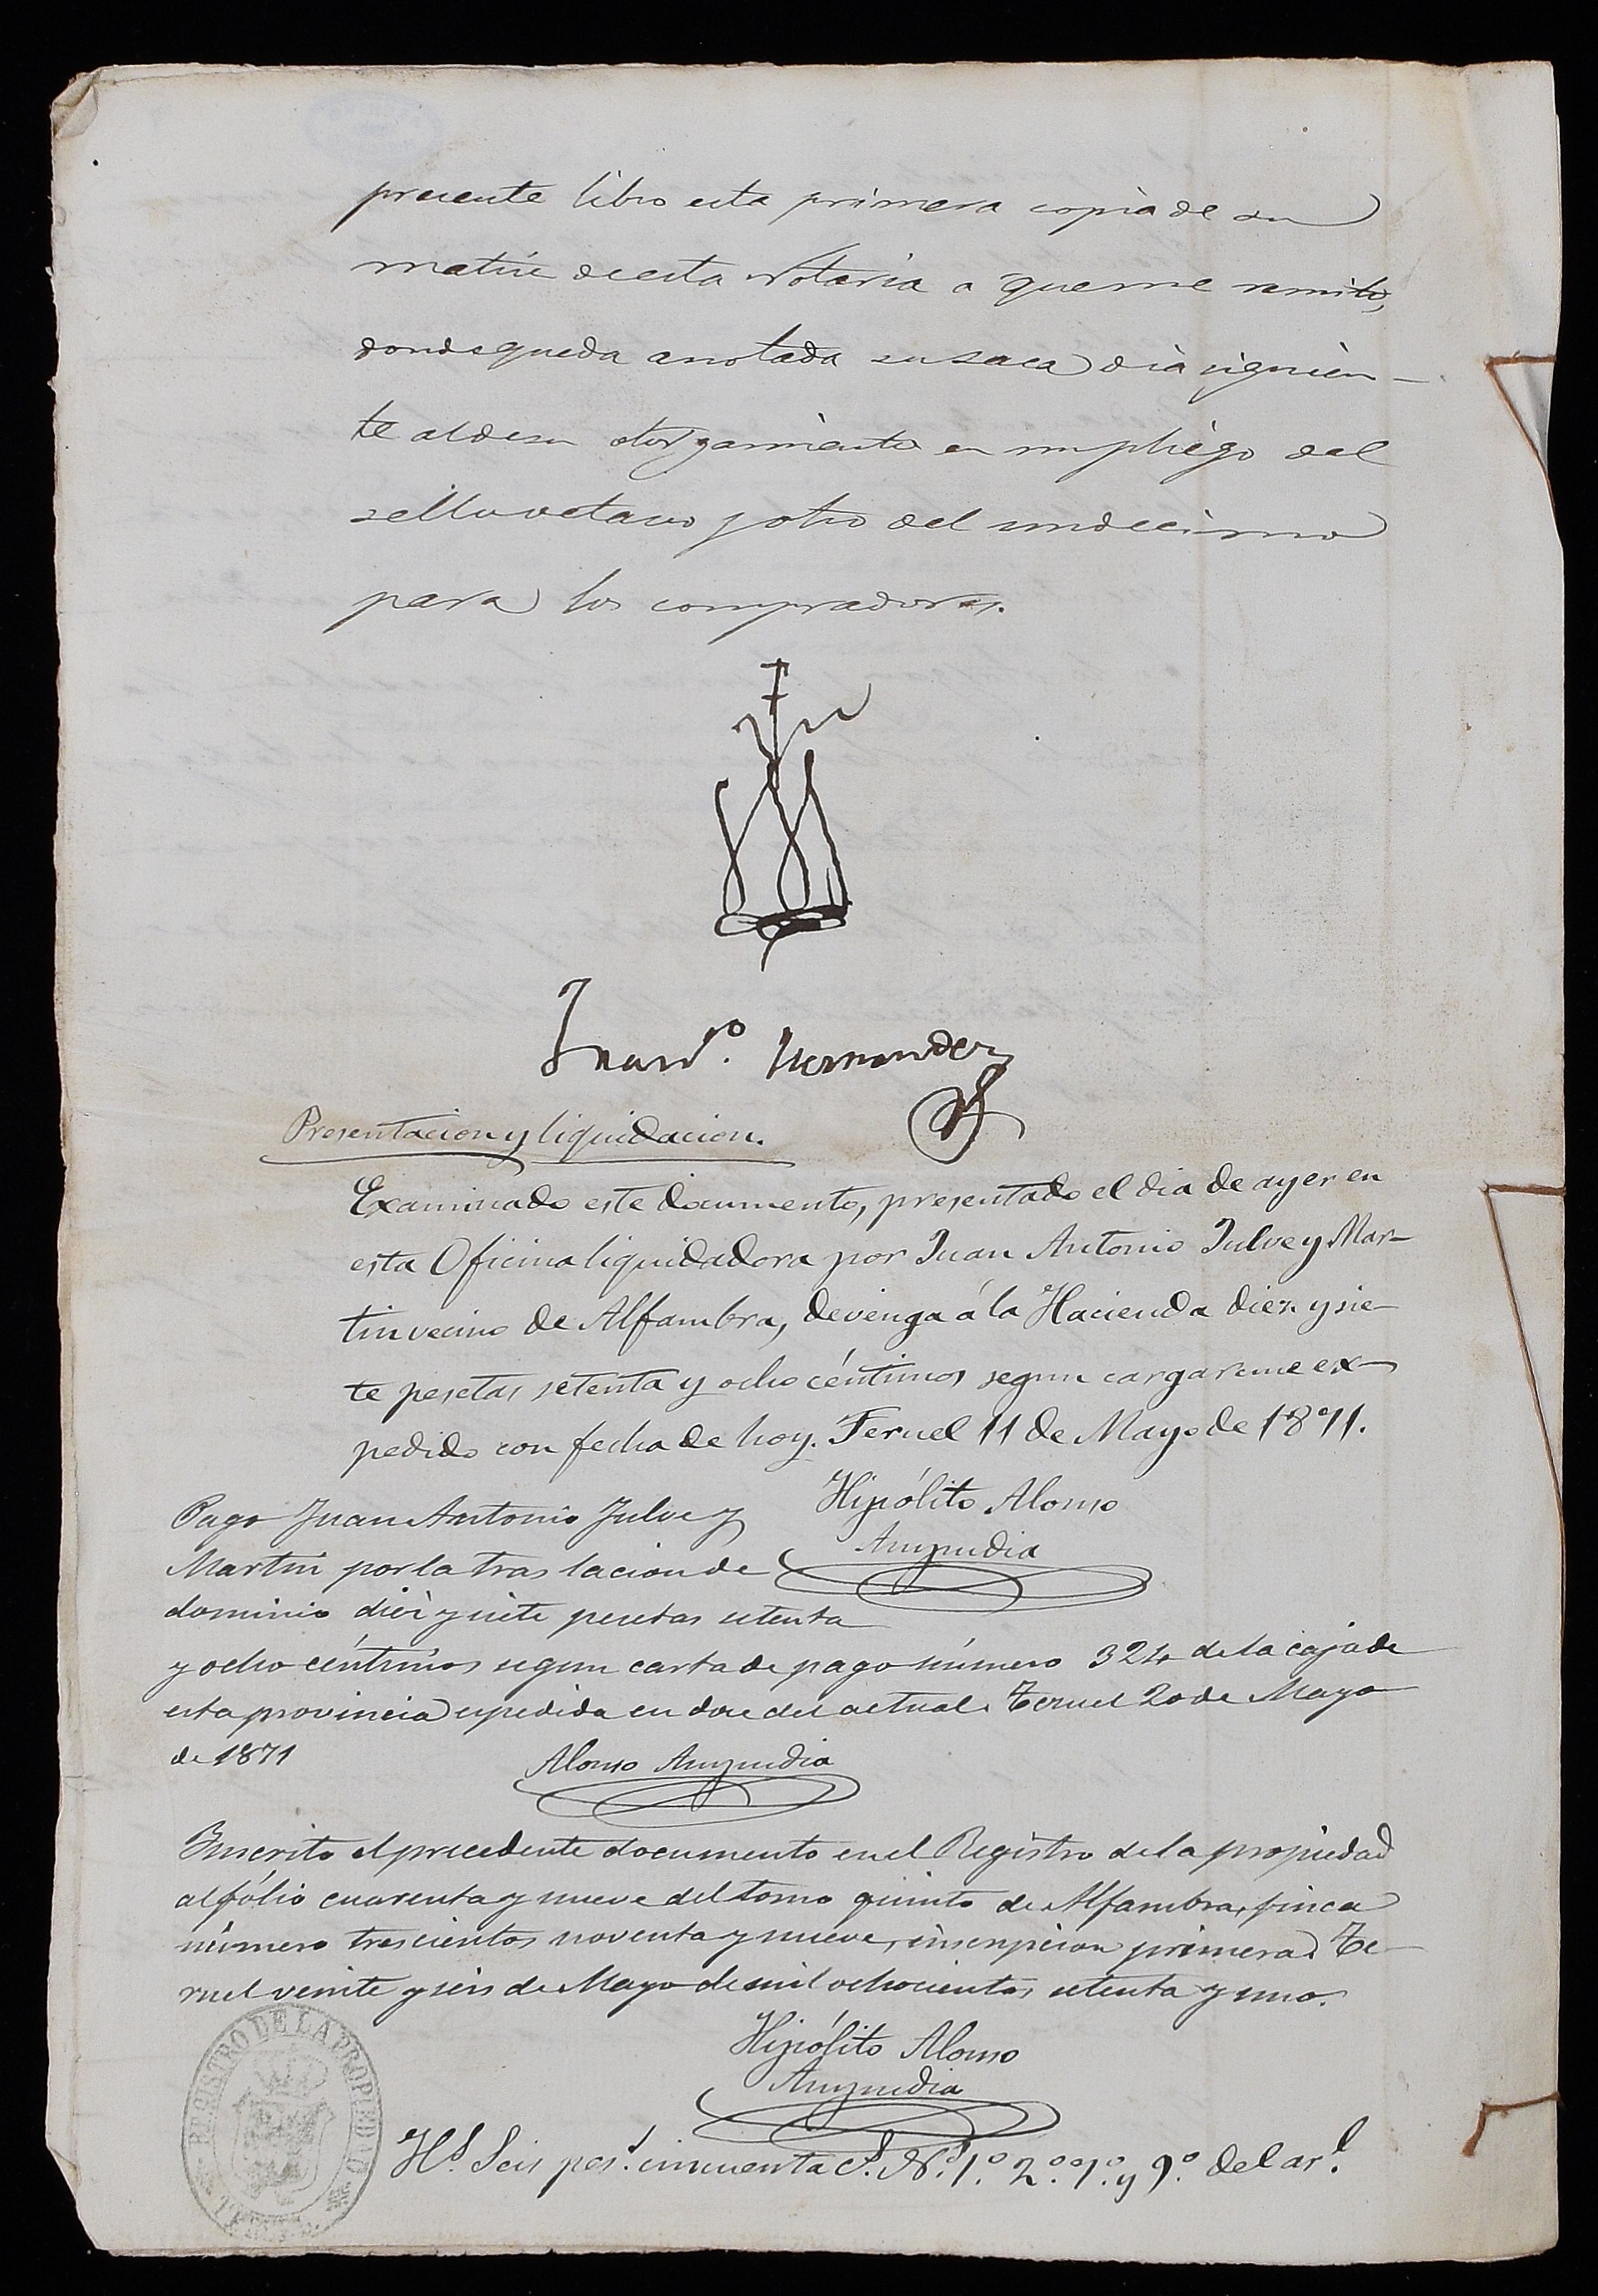 presente libro esta primera copia de su
matriz de esta Notaria a que me remito,
donde queda anotada su saca dia siguien-
te al de su otorgamiento en un pliego del
sello octavo y otro del undecimo
para los compradores.
Hernandez
Presentacion y liquidacion.
Examinado este documento, presentado el dia de ayer en
esta Oficina liquidadora por Juan Antonio Julve y Mar-
tin vecino de Alfambra, devenga á la Hacienda diez y sie-
te pesetas setenta y ocho céntimos segun cargareme ex-
pedido con fecha de hoy. Teruel 11 de Mayo de 1871.
Hipólito Alonso
Ampudia
Pago Juan Antonio Julve y
Martin por la traslacion de
dominio diez y siete pesetas setenta
y ocho céntimos segun carta de pago número 324 de la caja de
esta provincia espedida en doce del actual. Teruel 20 de Mayo
de 1871
Alonso Ampudia
Inscrito el precedente documento en el Registro de la propiedad
al fólio cuarenta y nueve del tomo quinto de Alfambra, finca
número trescientos noventa y nueve, inscripcion primera. Te-
ruel veinte y seis de Mayo de mil ochocientos setenta y uno.
Hipólito Alonso
Ampudia
REGISTRO DE LA PROPIEDAD
Hs. Seis pes.s cincuenta cs. Ns. 1.º 2.º 7.º y 9.º del ar.l